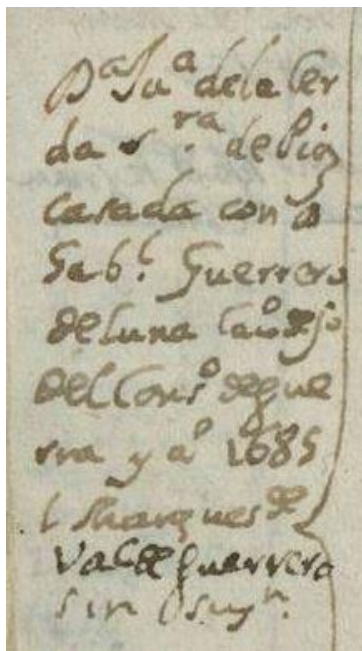 D.ª Ju.ª dela Cer
da s.ra de Pioz
casada con D
Gab.l Guerrero
de luna
del Cons.º de gue
rra y aº 1685
Marques de
Valdeguerrero
sin